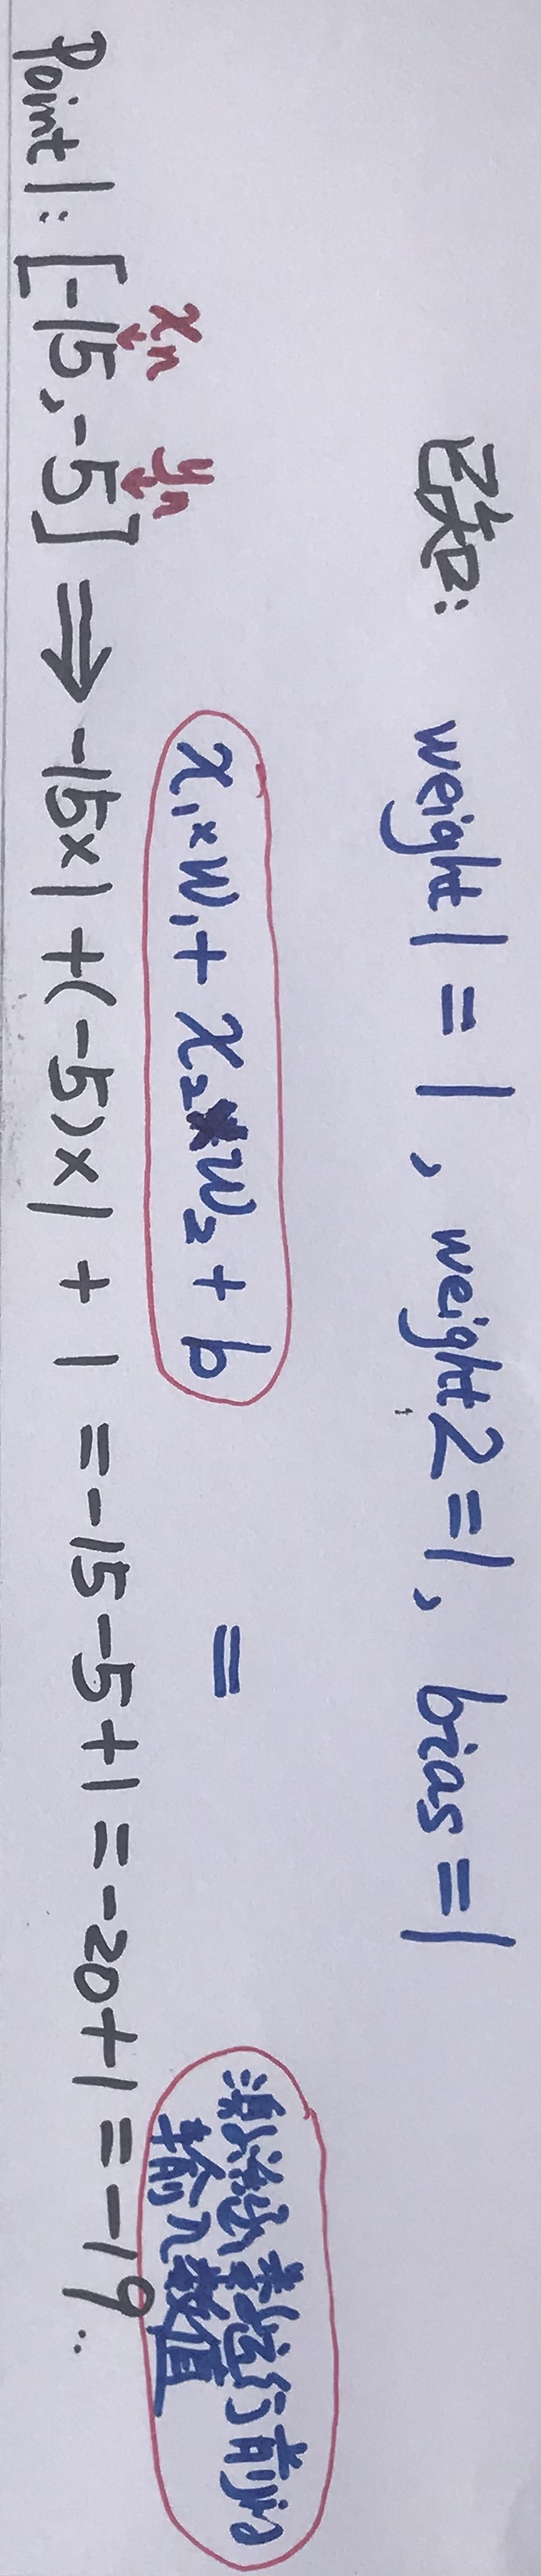 已知: weight1 = 1, weight2=1, bias=1
x₁×w₁+ x₂×w₂+ b = 激活函数运行前的
输入数值
xₙ yₙ
Point1: [-15,-5] ⇒ -15×1+(-5)×1 + 1 =-15-5+1=-20+1=-19..